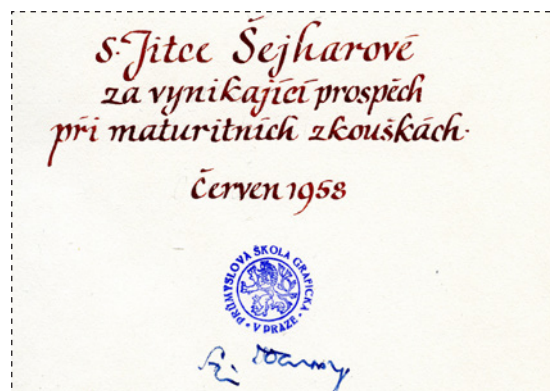 s. Jitce Šejharové
za vynikající prospěch
při maturitních zkouškách.
červen 1958
PRŮMYSLOVÁ ŠKOLA GRAFICKÁ
• V PRAZE •